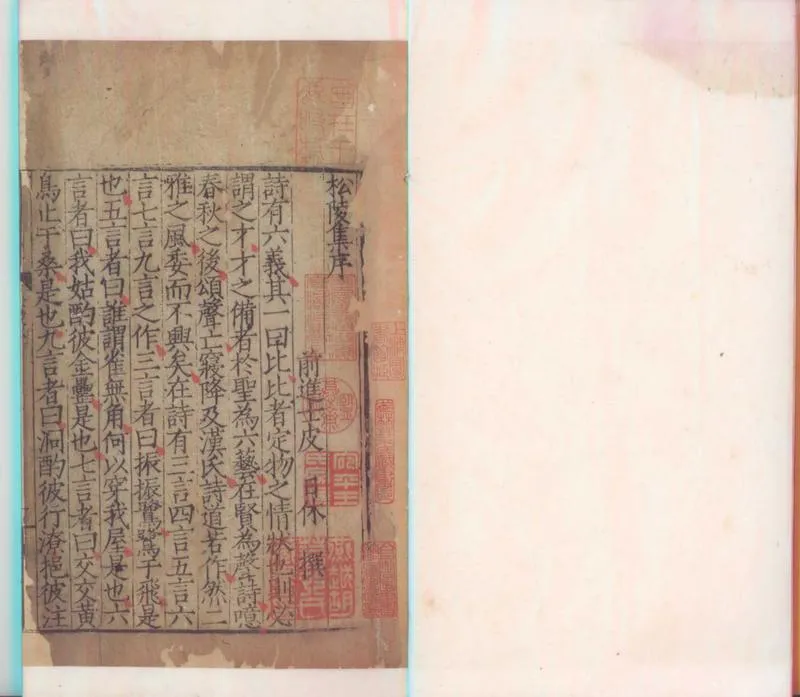 松陵集序
前進士皮日休撰
詩有六義其一曰比比者定物之情狀也則必
謂之才才之備者於聖為六藝在賢為聲詩噫
春秋之後頌聲亡寢降及漢氏詩道若作然二
雅之風委而不興矣在詩有三言四言五言六
言七言九言之作三言者曰振振鷺鷺于飛是
也五言者曰誰謂雀無角何以穿我屋是也六
言者曰我姑酌彼金罍是也七言者曰交交黃
鳥止于桑是也九言者曰泂酌彼行潦挹彼注